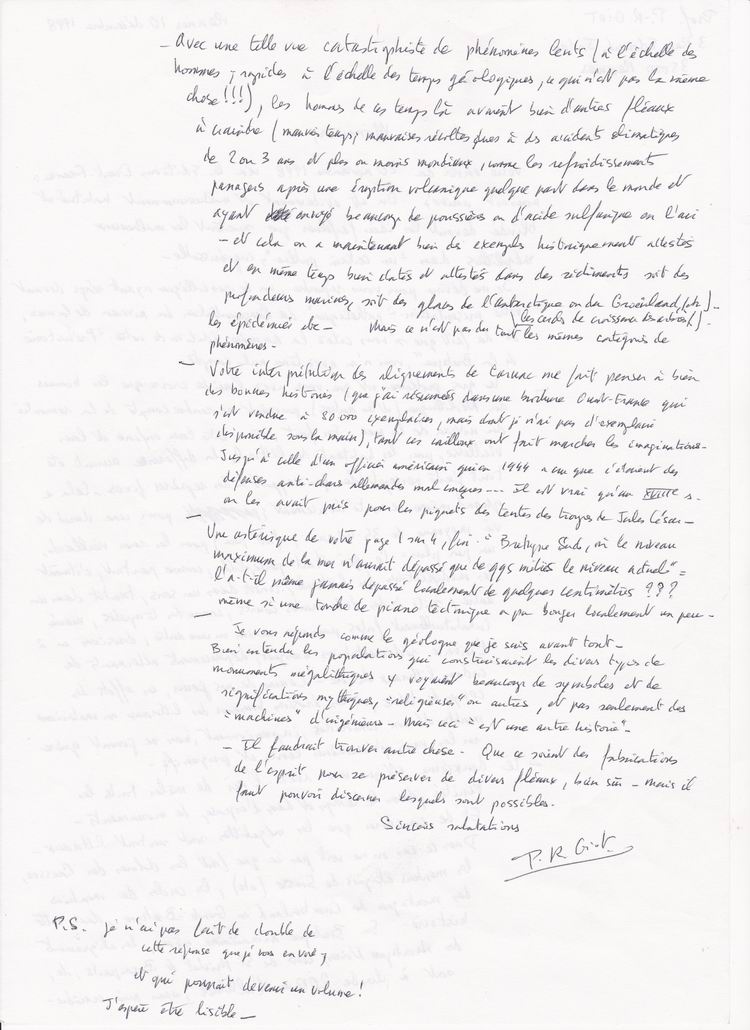 - Avec une telle vue catastrophiste de phénomènes lents (à l'échelle des
hommes ; rapides à l'échelle des temps géologiques, ce qui n'est pas la même
chose !!!), les hommes de ces temps là avaient bien d'autres fléaux
à craindre (mauvais temps ; mauvaises récoltes dues à des accidents climatiques
de 2 ou 3 ans et plus ou moins mondiaux, comme les refroidissements
passagers après une éruption volcanique quelque part dans le monde et
ayant envoyé beaucoup de poussières ou d'acide sulfurique en l'air
- et cela on a maintenant bien des exemples historiquement attestés
et en même temps bien datés et attestés dans des sédiments soit des
profondeurs marines, soit des glaces de l'antarctique ou du Groënland, etc) -
(les cercles de croissance des arbres) -
les épidémies etc - mais ce n'est pas du tout les mêmes catégories de
phénomènes -
- Votre interprétation des alignements de Carnac me fait penser à bien
des bonnes histoires (que j'ai résumées dans une brochure Ouest-France qui
s'est vendue à 80 000 exemplaires, mais dont je n'ai pas d'exemplaire
disponible sous la main), tant ces cailloux ont fait marcher les imaginations -
Jusqu'à celle d'un officier américain qui en 1944 a cru que c'étaient des
défenses anti-chars allemandes mal conçues --- Il est vrai qu'au XVIIIe s.
on les avait pris pour les piquets des tentes des troupes de Jules César -
- Une astérisque de votre page 1 sur 4, fin - "Bretagne Sud, où le niveau
maximum de la mer n'aurait dépassé que de 0,5 mètres le niveau actuel" =
l'a-t-il même jamais dépassé localement de quelques centimètres ???
même si une touche de piano tectonique a pu bouger localement un peu -
- Je vous réponds comme le géologue que je suis avant tout -
Bien entendu les populations qui construisaient les divers types de
monuments mégalithiques y voyaient beaucoup de symboles et de
significations mythiques, "religieuses" ou autres, et pas seulement des
"machines" d'ingénieurs - Mais ceci "est une autre histoire" -
- Il faudrait trouver autre chose - Que ce soient des fabrications
de l'esprit pour se préserver de divers fléaux, bien sûr - mais il
faut pouvoir discerner lesquels sont possibles.
Sincères salutations
P. R. Giot
P.S. je n'ai pas fait de double de
cette réponse que je vous envoie ;
et qui pourrait devenir un volume !
J'espère être lisible -